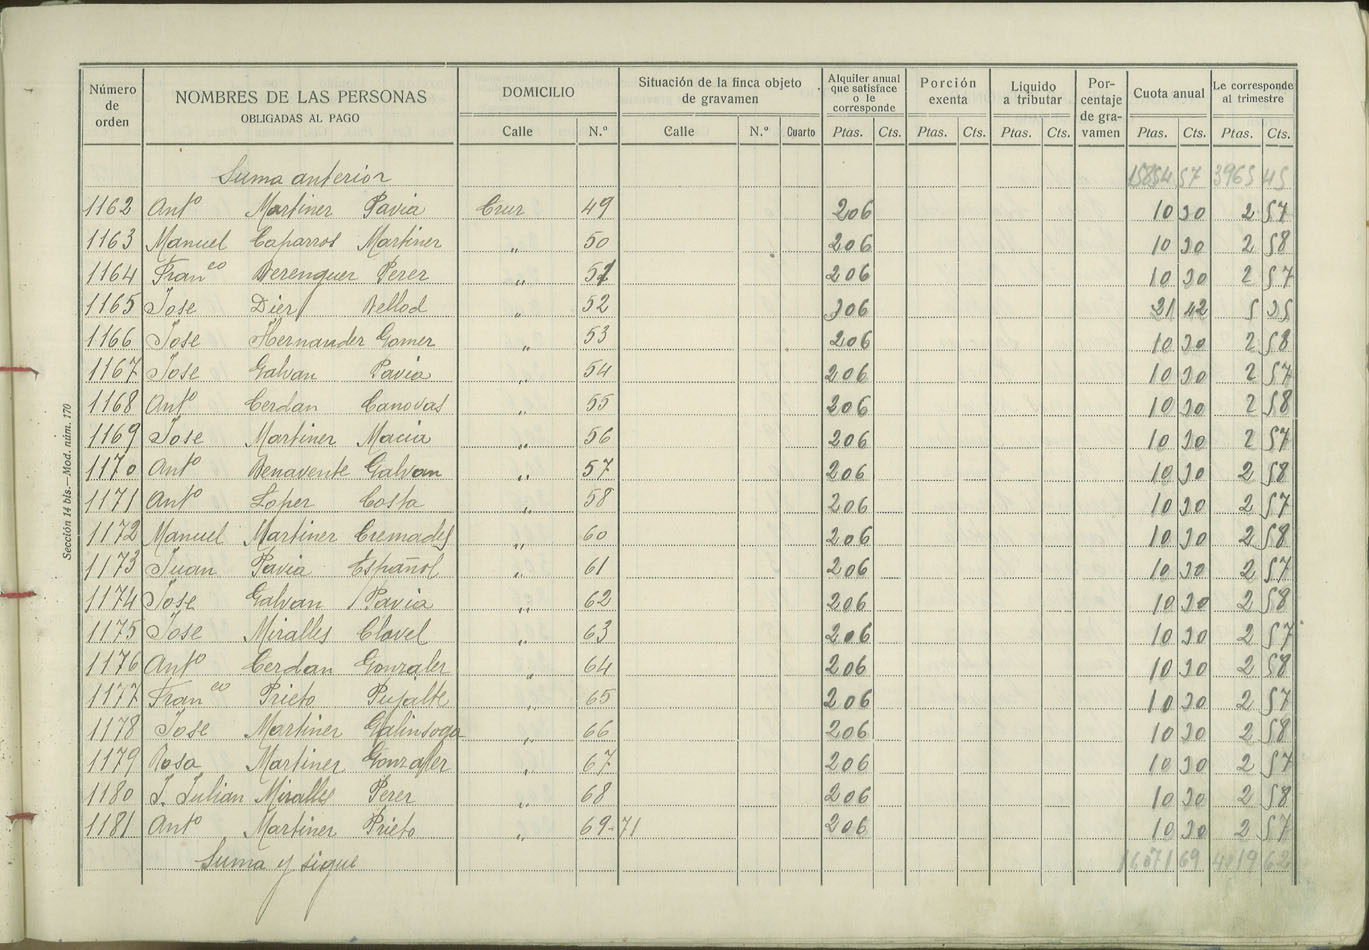 Número de orden NOMBRES DE LAS PERSONAS OBLIGADAS AL PAGO DOMICILIO Situación de la finca objeto de gravamen Alquiler anual que satisface o le corresponde Porción exenta Liquido a tributar Porcentaje de gravamen Cuota anual Le corresponde al trimestre
Calle N.º Calle N.º Cuarto Ptas. Cts. Ptas. Cts. Ptas. Cts. Ptas. Cts. Ptas. Cts.
Suma anterior 15854 57 3965 45
1162 Antº Martinez Pavia Cruz 49 206 10 30 2 57
1163 Manuel Caparros Martinez „ 50 206 10 30 2 58
1164 Franco Berenguer Perez „ 51 206 10 30 2 57
1165 Jose Diez Bellod „ 52 306 21 42 5 35
1166 Jose Hernandez Gomez „ 53 206 10 30 2 58
1167 Jose Galvan Pavia „ 54 206 10 30 2 57
1168 Antº Cerdan Canovas „ 55 206 10 30 2 58
1169 Jose Martinez Macia „ 56 206 10 30 2 57
1170 Antº Benavente Galvan „ 57 206 10 30 2 58
1171 Antº Lopez Costa „ 58 206 10 30 2 57
1172 Manuel Martinez Cremades „ 60 206 10 30 2 58
1173 Juan Pavia Español „ 61 206 10 30 2 57
1174 Jose Galvan Pavia „ 62 206 10 30 2 58
1175 Jose Miralles Clavel „ 63 206 10 30 2 57
1176 Antº Cerdan Gonzalez „ 64 206 10 30 2 58
1177 Franco Prieto Pujalte „ 65 206 10 30 2 57
1178 Jose Martinez Galinsoga „ 66 206 10 30 2 58
1179 Rosa Martinez Gonzalez „ 67 206 10 30 2 57
1180 J. Julian Miralles Perez „ 68 206 10 30 2 58
1181 Antº Martinez Prieto „ 69-71 206 10 30 2 57
Suma y sigue 16071 69 4019 62
Sección 14 bis.—Mod. núm. 170